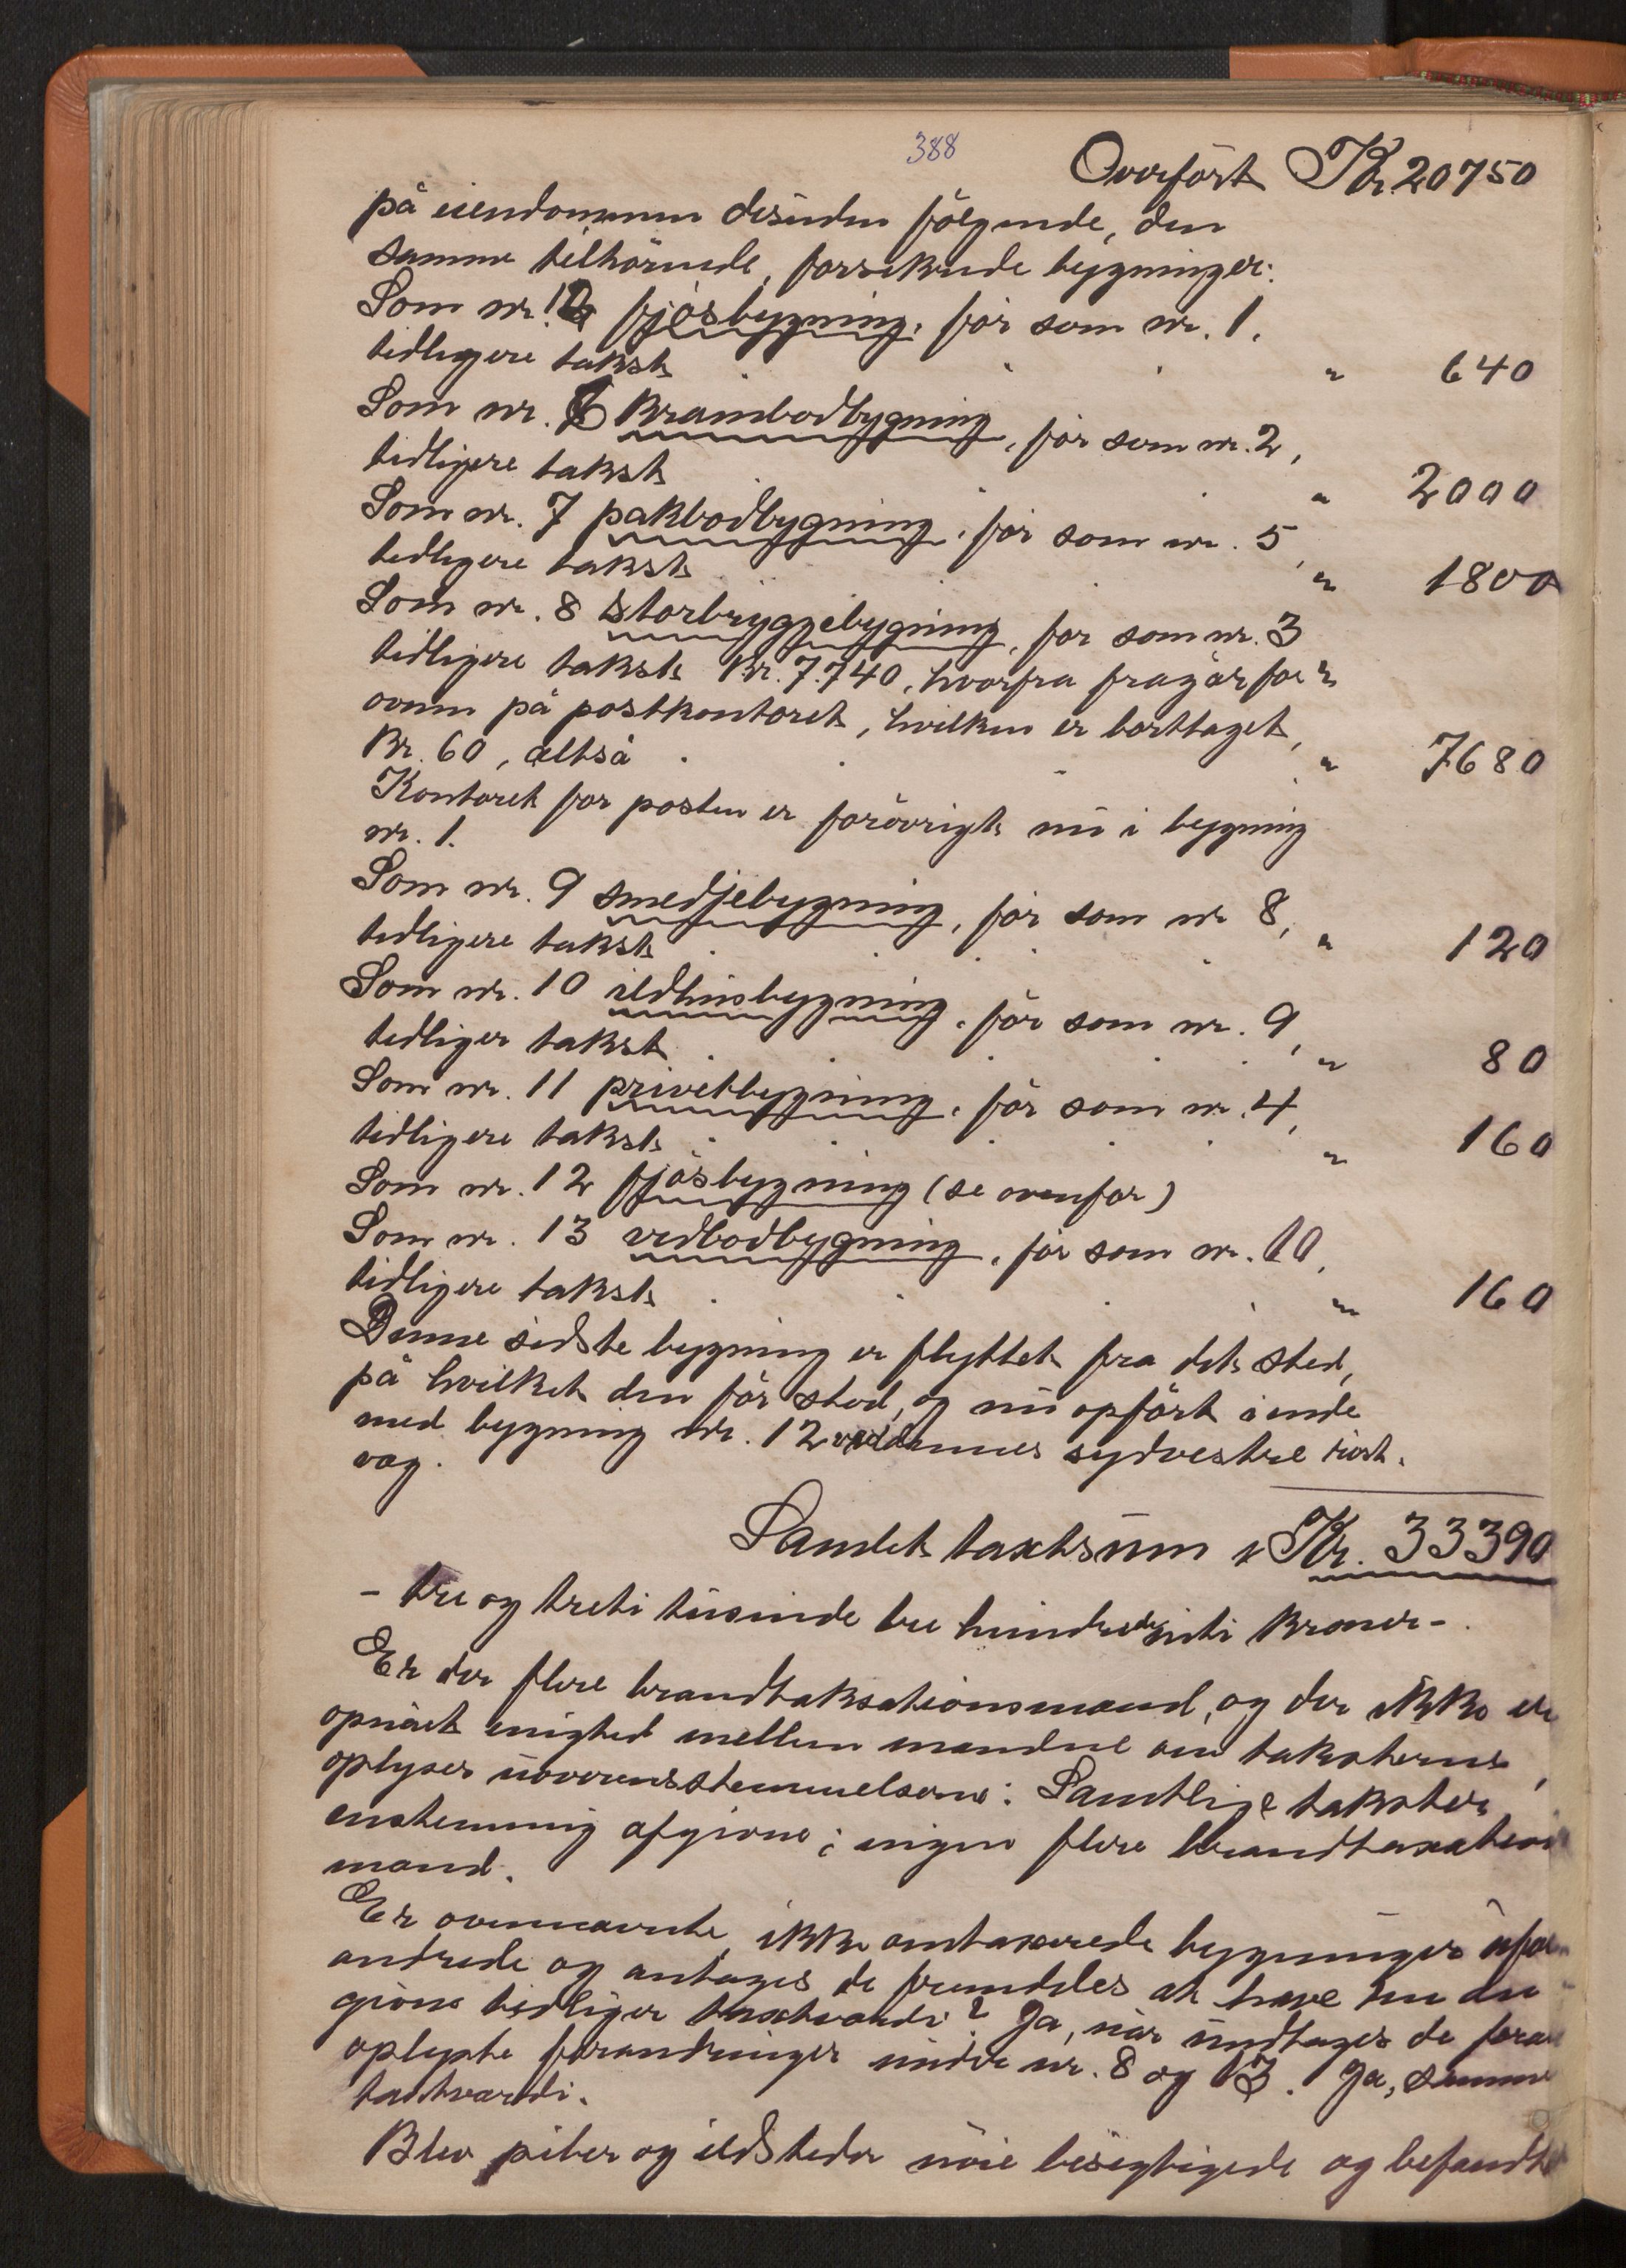 388
Overført Kr. 20750
på eiendommen desuden følgende, den
samme tilhørende, forsikrede bygninger:
Som nr. 12 fjøsbygning, før som nr. 1.
tidligere takst . . . " 640
Som nr. 6 krambodbygning, før som nr. 2,
tidligere takst . . " 2000
Som nr. 7 pakbodbygning, før som nr. 5,
tidligere takst . . . " 1800
Som nr. 8 storbryggebygning, før som nr. 3
tidligere takst kr. 7.740, hvorfra fragår for
ovnen på postkontoret, hvilken er borttaget,
kr. 60, altså . . . " 7680
Kontoret for posten er forøvrigt nu i bygning
nr. 1.
Som nr. 9 smedjebygning, før som nr 8,
tidligere takst . . . . " 120
Som nr. 10 ildhusbygning, før som nr. 9,
tidliger takst . . . . " 80
Som nr. 11 privetbygning, før som nr. 4,
tidligere takst . . . . " 160
Som nr. 12 fjøsbygning (se ovenfor)
Som nr. 13 vedbodbygning, før som nr. 10,
tidligere takst . . . . " 160
Denne sidste bygning er flyttet fra det sted,
på hvilket den før stod, og nu opført i ende
med bygning nr. 12 ved dennes sydvestre
væg.
Samlet taxtsum Kr. 33390
- tre og treti tusinde tre hundrede niti kroner -.
Er der flere brandtaksationsmænd, og der ikke er
opnået enighed mellem mændene om taksterne,
oplyses uoverensstemmelserne: Samtlige takster
enstemmig afgivne; ingen flere brandtaxations
mænd.
Er ovennævnte, ikke omtaxerede bygninger ufor
andrede og antages de fremdeles at have den dem
givne tidliger taxtværdi? Ja, når undtages de foran
oplyste forandringer under nr. 8 og 13. Ja, samme
taxtværdi.
Blev piber og ildsteder nøie besigtigede og befandtes